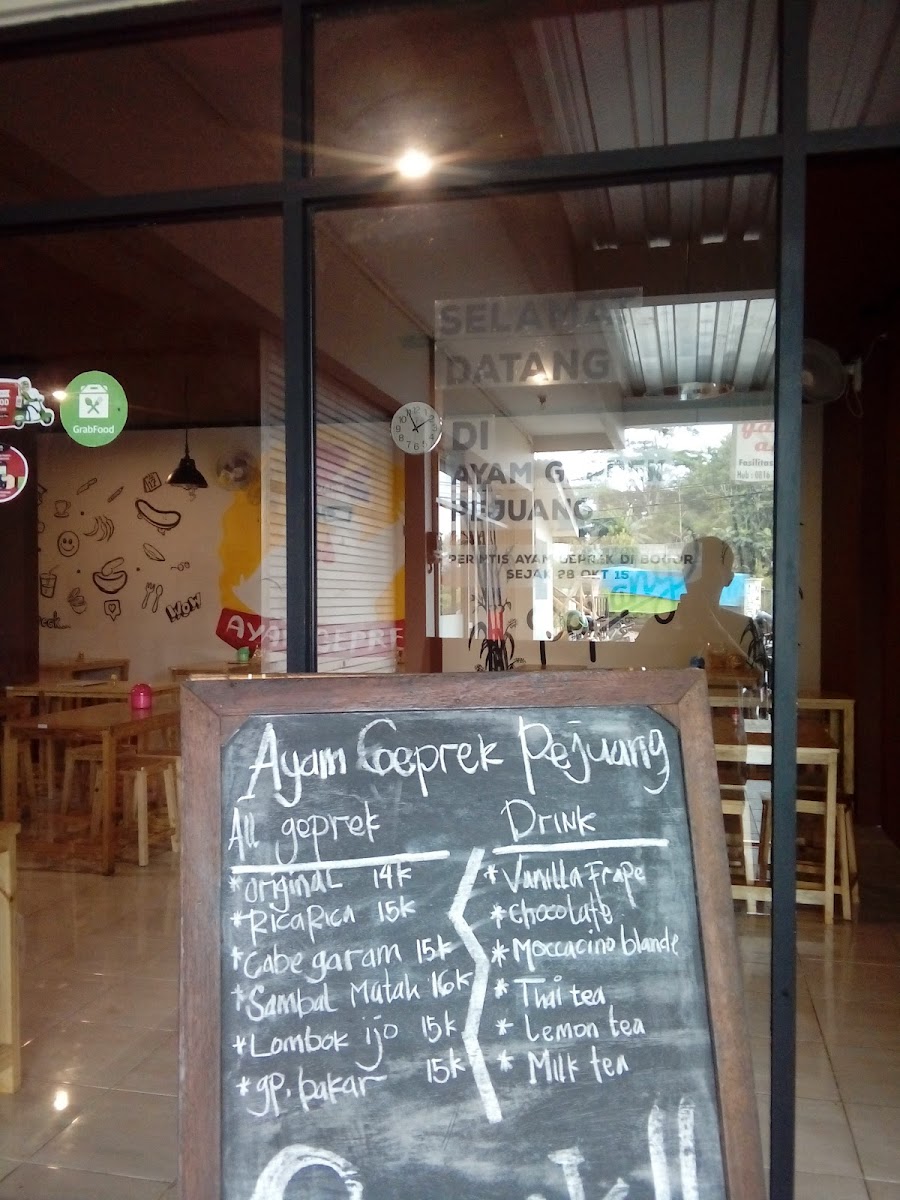 SELAMA
DATANG
DI
AYAM G
PEJUANG
PERINTIS AYAM GEPREK DI BOGOR
SEJAK 28 OKT 15
GrabFood
Fasilitas
WOW
AYAM GEPRE
Ayam Geprek Pejuang
All geprek
* original 14k
* RicaRica 15k
* Cabe garam 15k
* Sambal Matah 16k
* Lombok ijo 15k
* gp. bakar 15k
Drink
* Vanilla Frape
* chocolate
* Moccacino blande
* Thai tea
* Lemon tea
* Milk tea